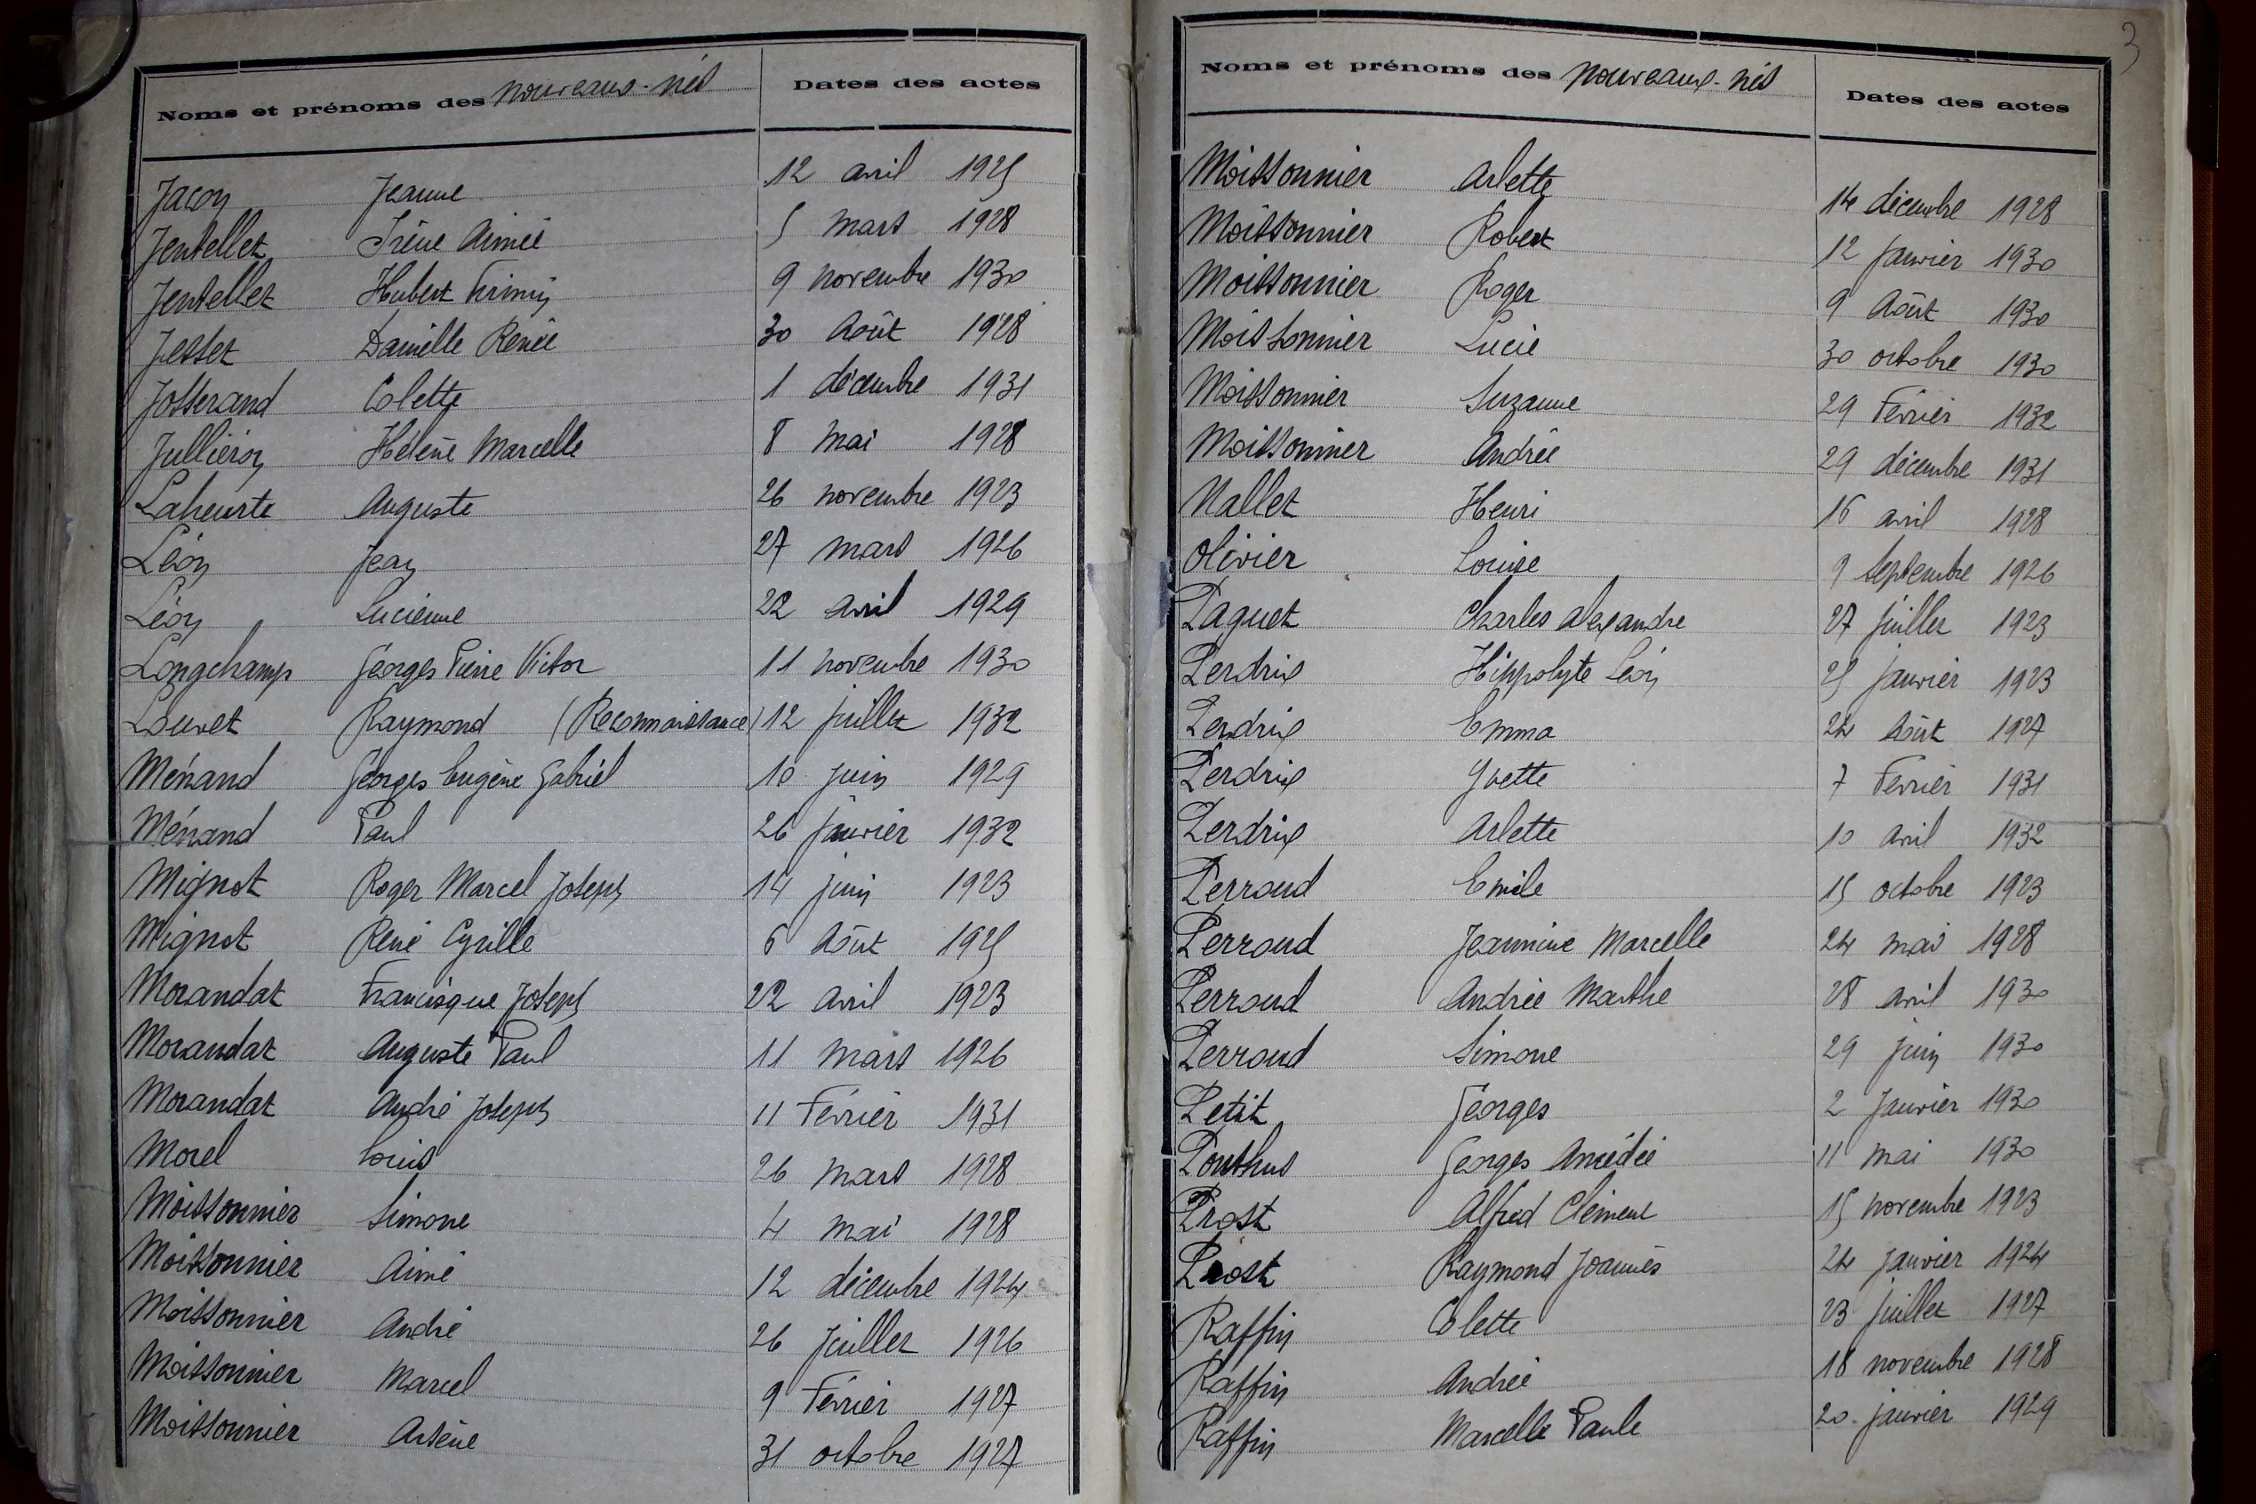 Noms et prénoms des nouveaux-nés Dates des actes
Jacon Jeanne 12 avril 1925
Jentellet Irène Aimée 5 mars 1928
Jentellet Hubert Firmin 9 novembre 1930
Jesset Danielle Renée 30 Août 1928
Josserand Colette 1 décembre 1931
Julliéron Hélène Marcelle 8 mai 1928
Laheurte Auguste 26 novembre 1923
Léon Jean 27 mars 1926
Léon Lucienne 22 avril 1929
Longchamp Georges Pierre Victor 11 novembre 1930
Louvet Raymond (Reconnaissance) 12 juillet 1932
Ménand Georges Eugène Gabriel 10 juin 1929
Ménand Paul 26 janvier 1932
Mignot Roger Marcel Joseph 14 juin 1923
Mignot René Cyrille 6 Août 1925
Morandat Francisque Joseph 22 avril 1923
Morandat Auguste Paul 11 mars 1926
Morandat André Joseph 11 Février 1931
Morel Louis 26 mars 1928
Moissonnier Simone 4 mai 1928
Moissonnier Aimé 12 décembre 1924
Moissonnier André 26 juillet 1926
Moissonnier Marcel 9 Février 1927
Moissonnier Arsène 31 octobre 1927
3
Noms et prénoms des nouveaux-nés Dates des actes
Moissonnier Arlette 14 décembre 1928
Moissonnier Robert 12 janvier 1930
Moissonnier Roger 9 Août 1930
Moissonnier Lucie 30 octobre 1930
Moissonnier Suzanne 29 Février 1932
Moissonnier Andrée 29 décembre 1931
Nallet Henri 16 avril 1928
Olivier Louise 9 septembre 1926
Paquet Charles Alexandre 27 juillet 1923
Perdrix Hippolyte Léon 25 janvier 1923
Perdrix Emma 24 Août 1927
Perdrix Yvette 7 Février 1931
Perdrix Arlette 10 avril 1932
Perroud Emile 15 octobre 1923
Perroud Jeannine Marcelle 24 mai 1928
Perroud Andrée Marthe 28 avril 1930
Perroud Simone 29 juin 1930
Petit Georges 2 janvier 1930
Ponthus Georges Amédée 11 mai 1930
Prost Alfred Clément 15 novembre 1923
Prost Raymond Joannès 24 janvier 1924
Raffin Colette 23 juillet 1927
Raffin Andrée 18 novembre 1928
Raffin Marcelle Paule 20 janvier 1929